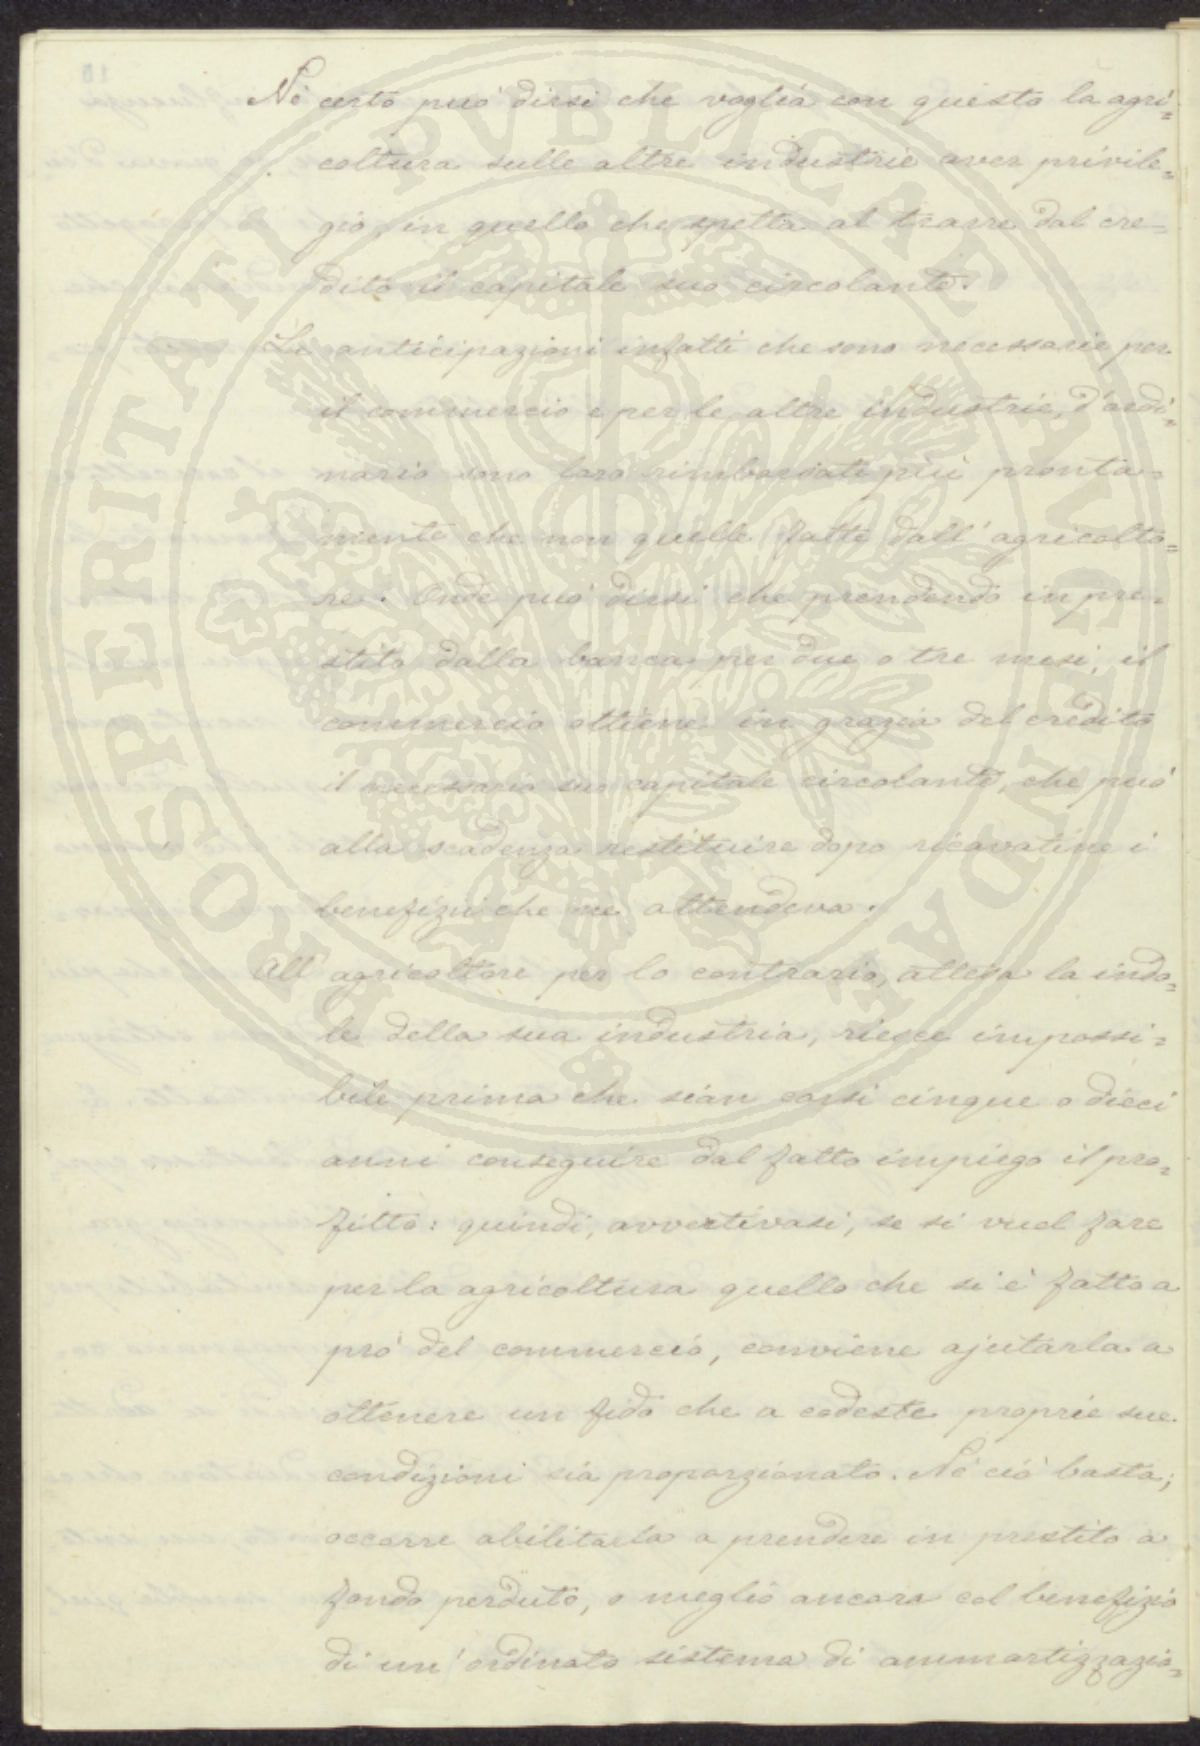 Nè certo può dirsi che voglia con questo la agri=
coltura sulle altre industrie aver privile=
gio, in quello che spetta al trarre dal cre=
dito il capitale suo circolante.
Le anticipazioni infatti che sono necessarie per
il commercio e per le altre industrie, d'ordi=
nario sono loro rimborsate più pronta=
mente che non quelle fatte dall'agricolto=
re. Onde può dirsi che prendendo in pre=
stito dalla banca per due o tre mesi, il
commercio ottiene in grazia del credito
il necessario suo capitale circolante, che può
alla scadenza restituire dopo ricavatine i
benefizii che ne attendeva.
All'agricoltore per lo contrario, attesa la indo=
le della sua industria, riesce impossi=
bile prima che sian corsi cinque o dieci
anni conseguire dal fatto impiego il pro=
fitto: quindi, avvertivasi, se si vuol fare
per la agricoltura quello che si è fatto a
prò del commercio, conviene ajutarla a
ottenere un fido che a codeste proprie sue
condizioni sia proporzionato. Nè ciò basta;
occorre abilitarla a prendere in prestito a
fondo perduto, o meglio ancora col benefizio
di un'ordinato sistema di ammortizzazio=
PROSPERITATI PVBLICAE AVGENDAE